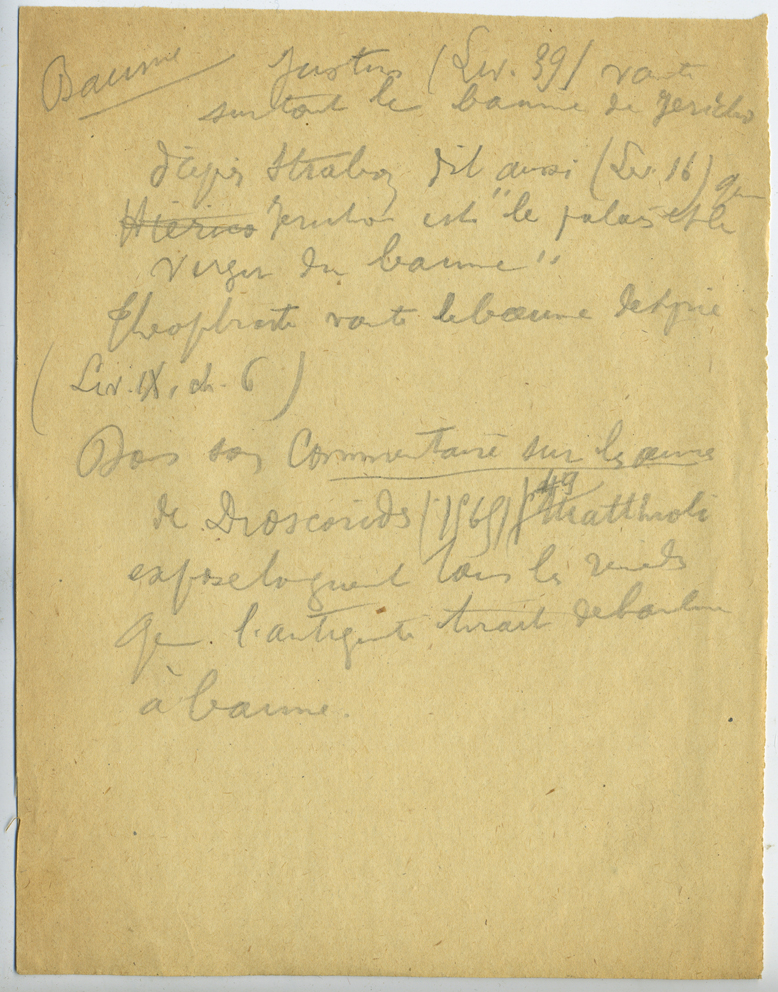 Baume Justin (Liv. 39) vante
surtout le baume de Jericho
Strabon dit aussi (Liv. 16) que
Hierico Jericho est "le palais et le
verger du baume"
Theophraste vante le baume
(Liv. IX, ch. 6)
Dans son Commentaire sur les œuvres
de Dioscorides (1565) Matthioli
expose longuement tous les remèdes
que l'antiquité tirait du
à baume.